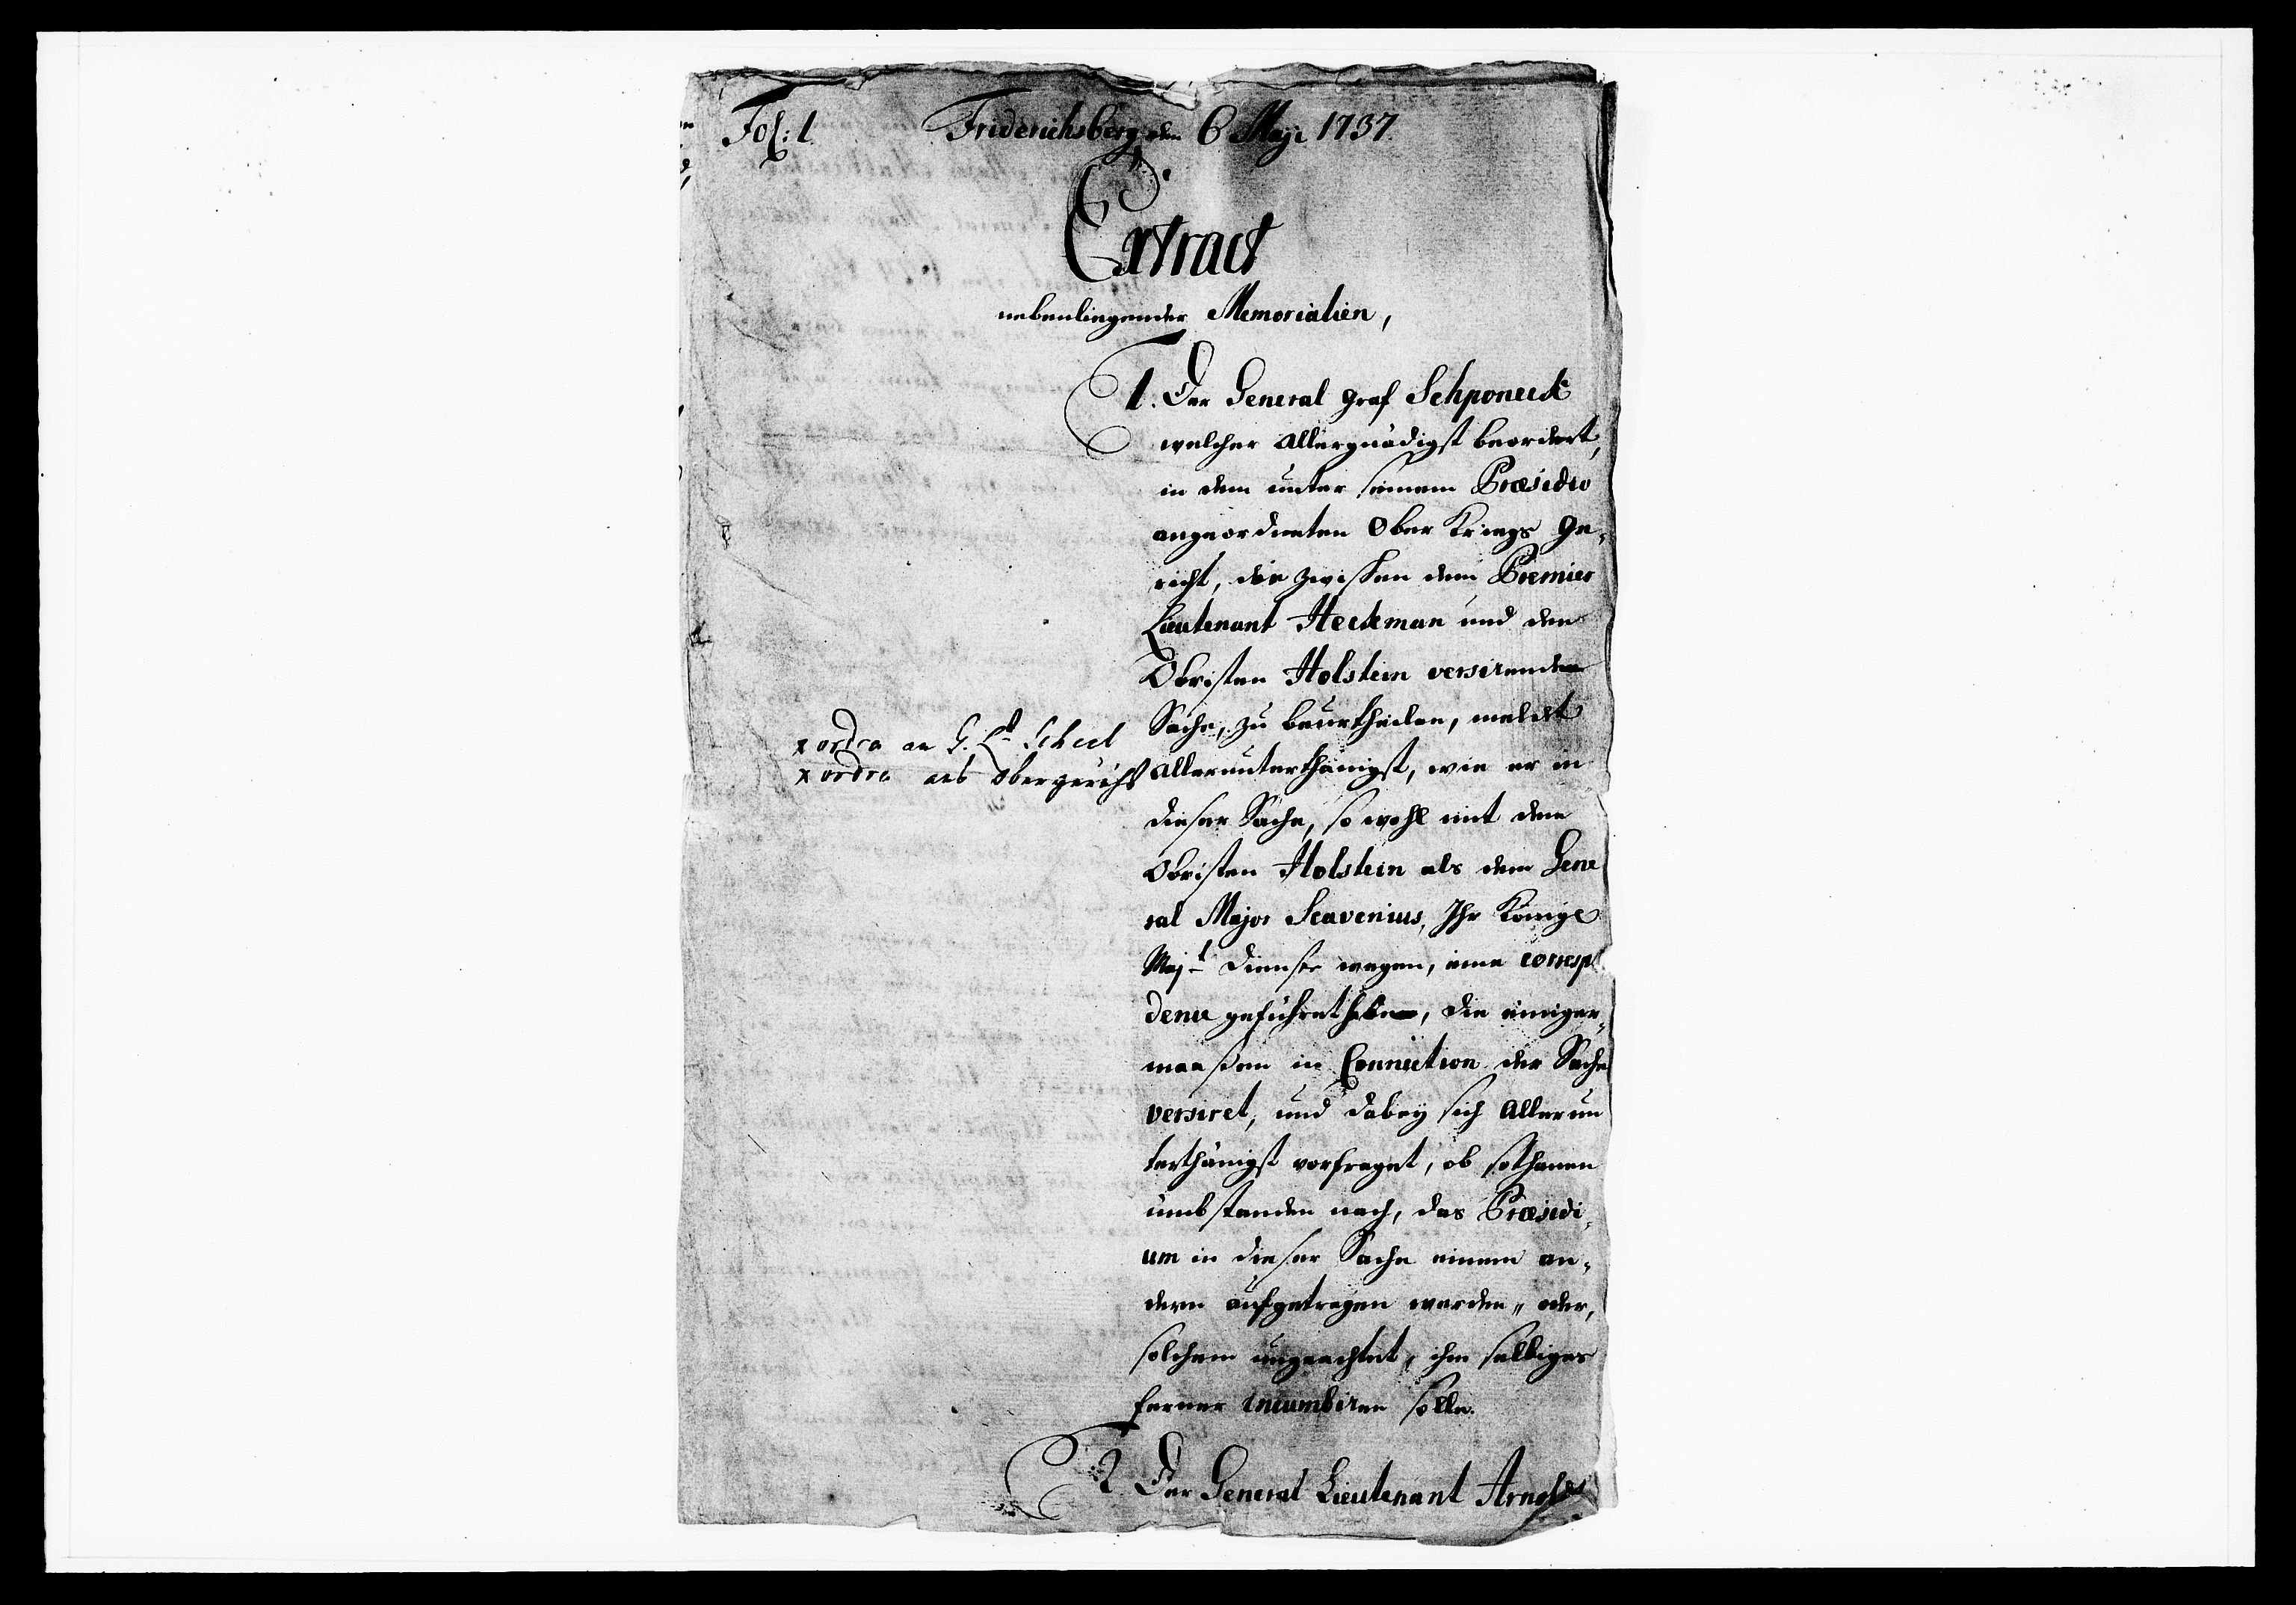 Fol: 1.
Friderichsberg den 6 Maji 1737.
Extract
nebenliegender Memorialien,
1. Der General Graf Schponeck
welcher allergnädigst beordert,
in dem unter seinem Præsidio
angeordneten Ober Kriegs Ge-
richt, die zwischen dem Premier
Lieutenant Heckman und den
Obristen Holstein versirende
Sache, zu beurtheilen, meldet
allerunterthänigst, wie er in
dieser Sache, so wohl mit dem
Obristen Holstein als dem Gene
ral Major Scavenius, Ihr Königl
Majt Dienste wegen, eine corresp
dence geführet habe, die einiger-
maaßen in Connection der Sache
versiret, und dabey sich allerun
terthänigst vorfraget, ob sothanen
umbständen nach, das Præsidi-
um in dieser Sache einem an-
dern aufgetragen werden, oder,
solchem ungeachtet, ihm selbiges
ferner incumbiren solle.
x ordre an G. Lt Scheel
x ordre ans Obergericht
2. Der General Lieutenant Arnold